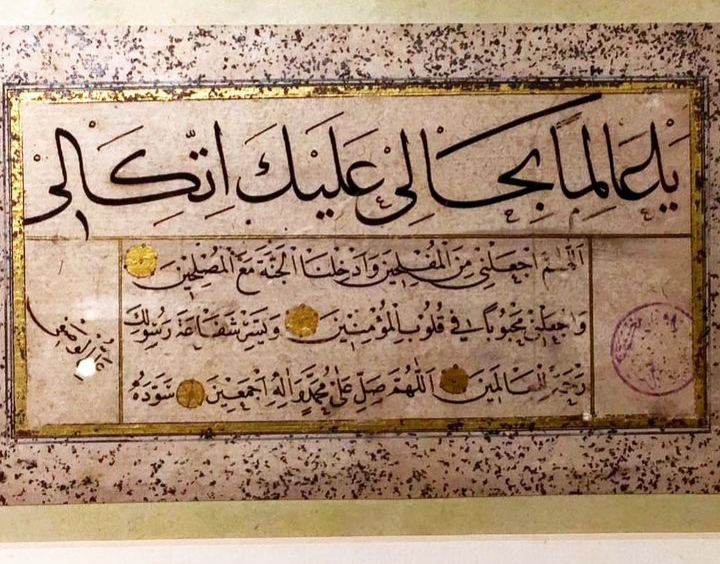 يَا عَالِمًا بِحَالِي عَلَيْكَ اتِّكَالِي
اَللّٰهُمَّ اجْعَلْنِي مِنَ الْمُفْلِحِينَ وَادْخِلْنَا الْجَنَّةَ مَعَ الْمُصْلِحِينَ
وَاجْعَلْنِي مَحْبُوبًا فِي قُلُوبِ الْمُؤْمِنِينَ وَيَسِّرْ شَفَاعَةَ رَسُولِكَ
رَحْمَةً لِلْعَالَمِينَ اَللّٰهُمَّ صَلِّ عَلَى مُحَمَّدٍ وَاٰلِهِ اَجْمَعِينَ سَوَّدَهُ